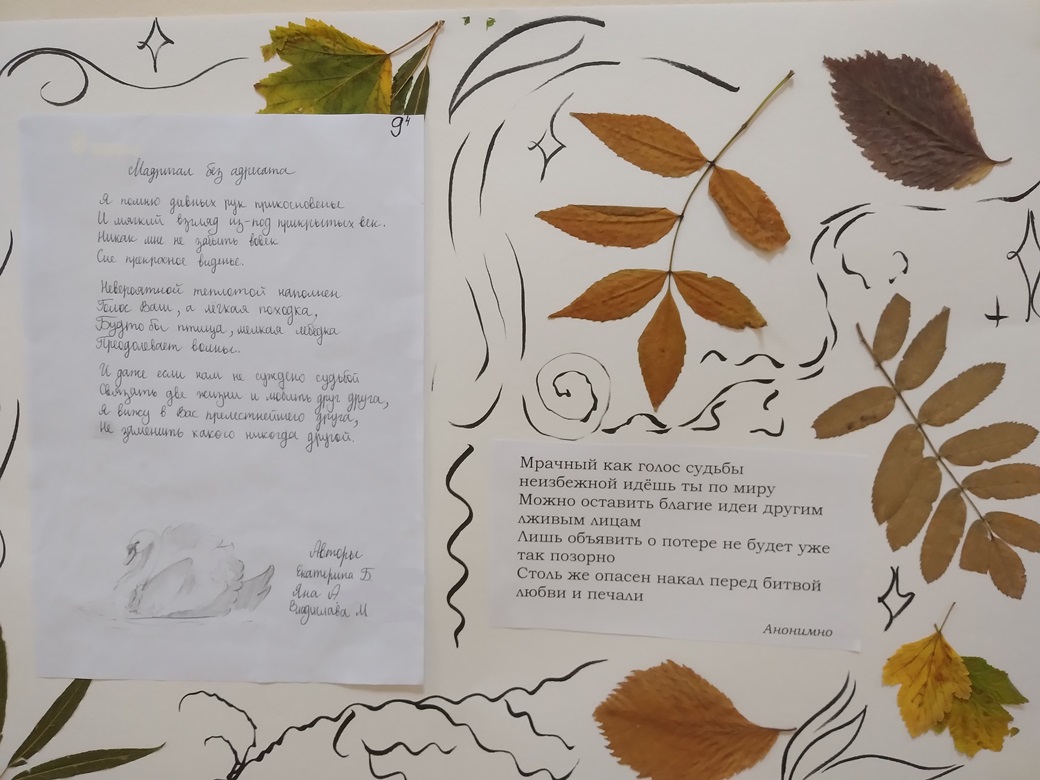 9ч
Мадригал без адресата
Я помню дивных рук прикосновенье
И мягкий взгляд из-под прикрытых век.
Никак мне не забыть вовек
Сие прекрасное виденье.
Невероятной теплотой наполнен
Голос Ваш, а лёгкая походка,
Будто бы птица, мелкая лебёдка
Преодолевает волны.
И даже если нам не суждено судьбой
Связать две жизни и любить друг друга,
Я вижу в Вас прелестнейшего друга,
Не заменить какого никогда другой.
Авторы
Екатерина Б
Яна А
Владислава М
Мрачный как голос судьбы
неизбежной идёшь ты по миру
Можно оставить благие идеи другим
лживым лицам
Лишь объявить о потере не будет уже
так позорно
Столь же опасен накал перед битвой
любви и печали
Анонимно